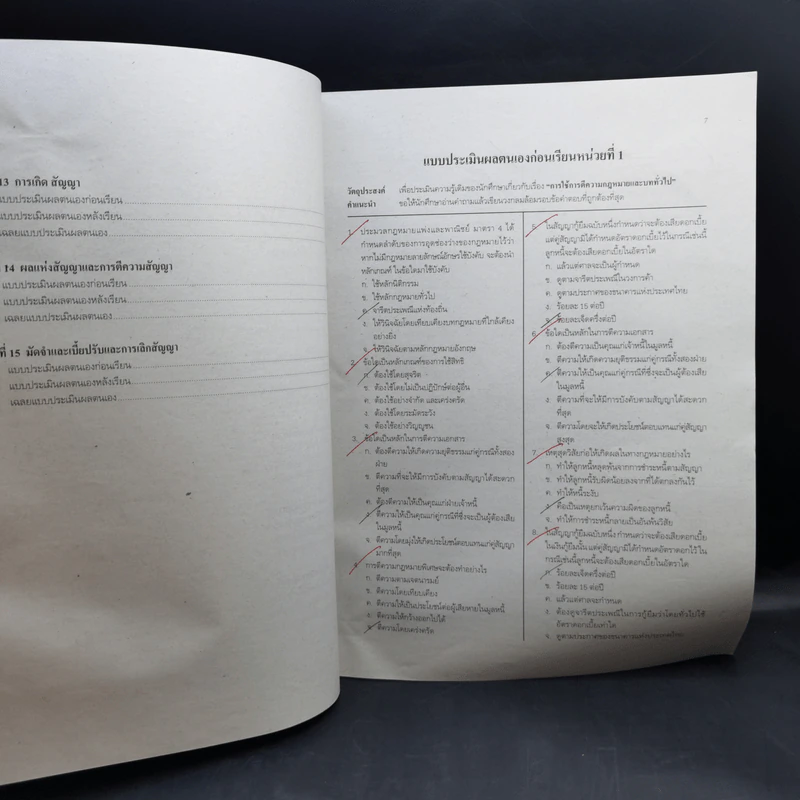 13 การเกิด สัญญา
แบบประเมินผลตนเองก่อนเรียน
แบบประเมินผลตนเองหลังเรียน
เฉลยแบบประเมินผลตนเอง
14 ผลแห่งสัญญาและการตีความสัญญา
แบบประเมินผลตนเองก่อนเรียน
แบบประเมินผลตนเองหลังเรียน
เฉลยแบบประเมินผลตนเอง
ที่ 15 มัดจำและเบี้ยปรับและการเลิกสัญญา
แบบประเมินผลตนเองก่อนเรียน
แบบประเมินผลตนเองหลังเรียน
เฉลยแบบประเมินผลตนเอง
7
แบบประเมินผลตนเองก่อนเรียนหน่วยที่ 1
วัตถุประสงค์ เพื่อประเมินความรู้เดิมของนักศึกษาเกี่ยวกับเรื่อง "การใช้การตีความกฎหมายและบททั่วไป"
คำแนะนำ ขอให้นักศึกษาอ่านคำถามแล้วเขียนวงกลมล้อมรอบข้อคำตอบที่ถูกต้องที่สุด
1. ประมวลกฎหมายแพ่งและพาณิชย์ มาตรา 4 ได้
กำหนดลำดับของการอุดช่องว่างของกฎหมายไว้ว่า
หากไม่มีกฎหมายลายลักษณ์อักษรใช้บังคับ จะต้องนำ
หลักเกณฑ์ ในข้อใดมาใช้บังคับ
ก. ใช้หลักนิติกรรม
ข. ใช้หลักกฎหมายทั่วไป
ค. จารีตประเพณีแห่งท้องถิ่น
ง. ให้วินิจฉัยโดยเทียบเคียงบทกฎหมายที่ใกล้เคียง
อย่างยิ่ง
จ. ให้วินิจฉัยตามหลักกฎหมายอังกฤษ
2. ข้อใดเป็นหลักเกณฑ์ของการใช้สิทธิ
ก. ต้องใช้โดยสุจริต
ข. ต้องใช้โดยไม่เป็นปฏิปักษ์ต่อผู้อื่น
ค. ต้องใช้อย่างจำกัด และเคร่งครัด
ง. ต้องใช้โดยระมัดระวัง
จ. ต้องใช้อย่างวิญญูชน
3. ข้อใดเป็นหลักในการตีความเอกสาร
ก. ต้องตีความให้เกิดความยุติธรรมแก่คู่กรณีทั้งสอง
ฝ่าย
ข. ตีความที่จะให้มีการบังคับตามสัญญาได้สะดวก
ที่สุด
ค. ต้องตีความให้เป็นคุณแก่ฝ่ายเจ้าหนี้
ง. ตีความให้เป็นคุณแก่คู่กรณีที่ซึ่งจะเป็นผู้ต้องเสีย
ในมูลหนี้
จ. ตีความโดยมุ่งให้เกิดประโยชน์ตอบแทนแก่คู่สัญญา
มากที่สุด
4. การตีความกฎหมายพิเศษจะต้องทำอย่างไร
ก. ตีความตามเจตนารมย์
ข. ตีความโดยเทียบเคียง
ค. ตีความให้เป็นประโยชน์ต่อผู้เสียหายในมูลหนี้
ง. ตีความให้กว้างออกไปได้
จ. ตีความโดยเคร่งครัด
5. ในสัญญากู้ยืมฉบับหนึ่งกำหนดว่าจะต้องเสียดอกเบี้ย
แต่คู่สัญญามิได้กำหนดอัตราดอกเบี้ยไว้ในกรณีเช่นนี้
ลูกหนี้จะต้องเสียดอกเบี้ยในอัตราใด
ก. แล้วแต่ศาลจะเป็นผู้กำหนด
ข. ดูตามจารีตประเพณีในวงการค้า
ค. ดูตามประกาศของธนาคารแห่งประเทศไทย
ง. ร้อยละ 15 ต่อปี
จ. ร้อยละเจ็ดครึ่งต่อปี
6. ข้อใดเป็นหลักในการตีความเอกสาร
ก. ต้องตีความเป็นคุณแก่เจ้าหนี้ในมูลหนี้
ข. ตีความให้เกิดความยุติธรรมแก่คู่กรณีทั้งสองฝ่าย
ค. ตีความให้เป็นคุณแก่คู่กรณีที่ซึ่งจะเป็นผู้ต้องเสีย
ในมูลหนี้
ง. ตีความที่จะให้มีการบังคับตามสัญญาได้สะดวก
ที่สุด
จ. ตีความโดยจะให้เกิดประโยชน์ตอบแทนแก่คู่สัญญา
สูงสุด
7. เหตุสุดวิสัยก่อให้เกิดผลในทางกฎหมายอย่างไร
ก. ทำให้ลูกหนี้หลุดพ้นจากการชำระหนี้ตามสัญญา
ข. ทำให้ลูกหนี้รับผิดน้อยลงจากที่ได้ตกลงกันไว้
ค. ทำให้หนี้ระงับ
ง. คือเป็นเหตุยกเว้นความผิดของลูกหนี้
จ. ทำให้การชำระหนี้กลายเป็นอันพ้นวิสัย
8. ในสัญญากู้ยืมฉบับหนึ่ง กำหนดว่าจะต้องเสียดอกเบี้ย
ในเงินกู้ยืมนั้น แต่คู่สัญญามิได้กำหนดอัตราดอกไว้ ใน
กรณีเช่นนี้ลูกหนี้จะต้องเสียดอกเบี้ยในอัตราใด
ก. ร้อยละเจ็ดครึ่งต่อปี
ข. ร้อยละ 15 ต่อปี
ค. แล้วแต่ศาลจะกำหนด
ง. ต้องดูจารีตประเพณีในการกู้ยืมว่าโดยทั่วไปใช้
อัตราดอกเบี้ยเท่าใด
จ. ดูตามประกาศของธนาคารแห่งประเทศไทย